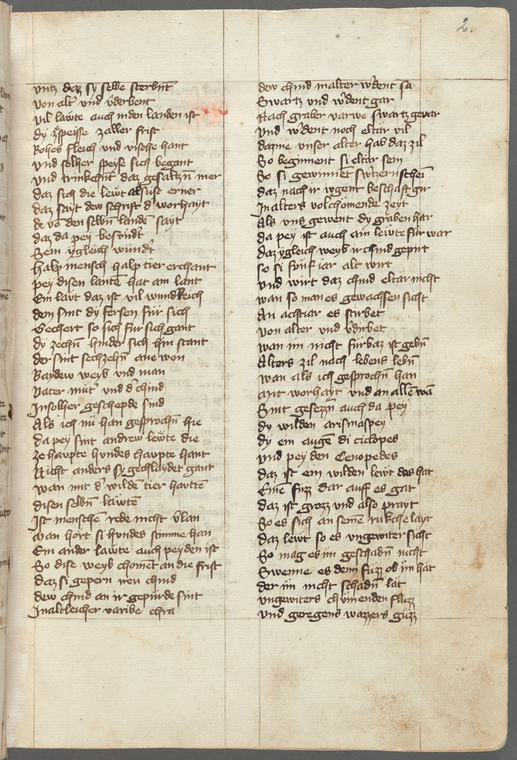 2.
vntz daz sy selbe sterbnt
von alter vnd verderbent
vil lawte auch in den landen ist
dy speise zaller frist
Rohes fleich vnd vische hant
vnd solher speyse sich begant
vnd trinkchent daz gesaltzn mer
daz sich die lewt alsust erner
daz sayt dew schrift
de vo den selbn lande sayt
daz da pey besvndr
Sem ygleich wundr
halp mensch halp tier erchant
pey disen lante hat am lant
Ein lavt daz ist vil wundleich
den sint dy fersen für sich
Gechert so sich für sich gant
dy zechn hinder sich hin stant
der sint sechzehn ane won
Baydew weyb vnd man
Vater mut vnd d chind
In solher geschepde sind
Als ich nu han gesprochn hie
da pey sint andrew lewte die
ze haupte hundes haupte hant
Nicht anders sy gechlaydet gant
wan mit d wilde tier hawtn
disen selbn lawtn
Ist mensche rede nicht
man hort si hundes stimme han
Ein ander lawte auch pey den ist
So dise weyb choment an die frist
daz si gepern iren chind
dew chind an ir gepurde sint
In altleicher varibe
dew chind in alter wdent sa
Swartz vnd wdent gar
Nach graber varwe swartz gevar
vnd wdent noch eltar vil
danne vnser alter hab daz zil
So beginnent si eltar sein
So si gewinnet
daz nach ir iugent
In alters volchomende zeyt
Als vns gewent dy graben har
da pey ist auch ain lewte für war
daz ygleich weyb ir chind gepirt
so si fünf iar alt wirt
vnd wirt daz chind eltar nicht
wan so man es gewachssen sicht
An achtiar es stirbet
von alter vnd vdirbet
wan im nicht fürbaz ist gebn
Alters zil nach lebens lebn
wan als ich gesprochn han
vnd an allen wan
Sint gesezn auch da pey
dy wilden arismaspey
dy ein auge di ciclopes
vnd pey den Cenopedes
daz ist ein wilden lewt das hat
Eine fuzz dar auff es gat
daz ist grozz vnd also prayt
So es sich an seine rukche layt
daz lewt so es vngewiter sicht
So mag es im geschadn nicht
Swenne es dem fuzz ob im hat
der im nicht schadn lat
vngewiters chomenden fluzz
vnd geregens wazzers guzz